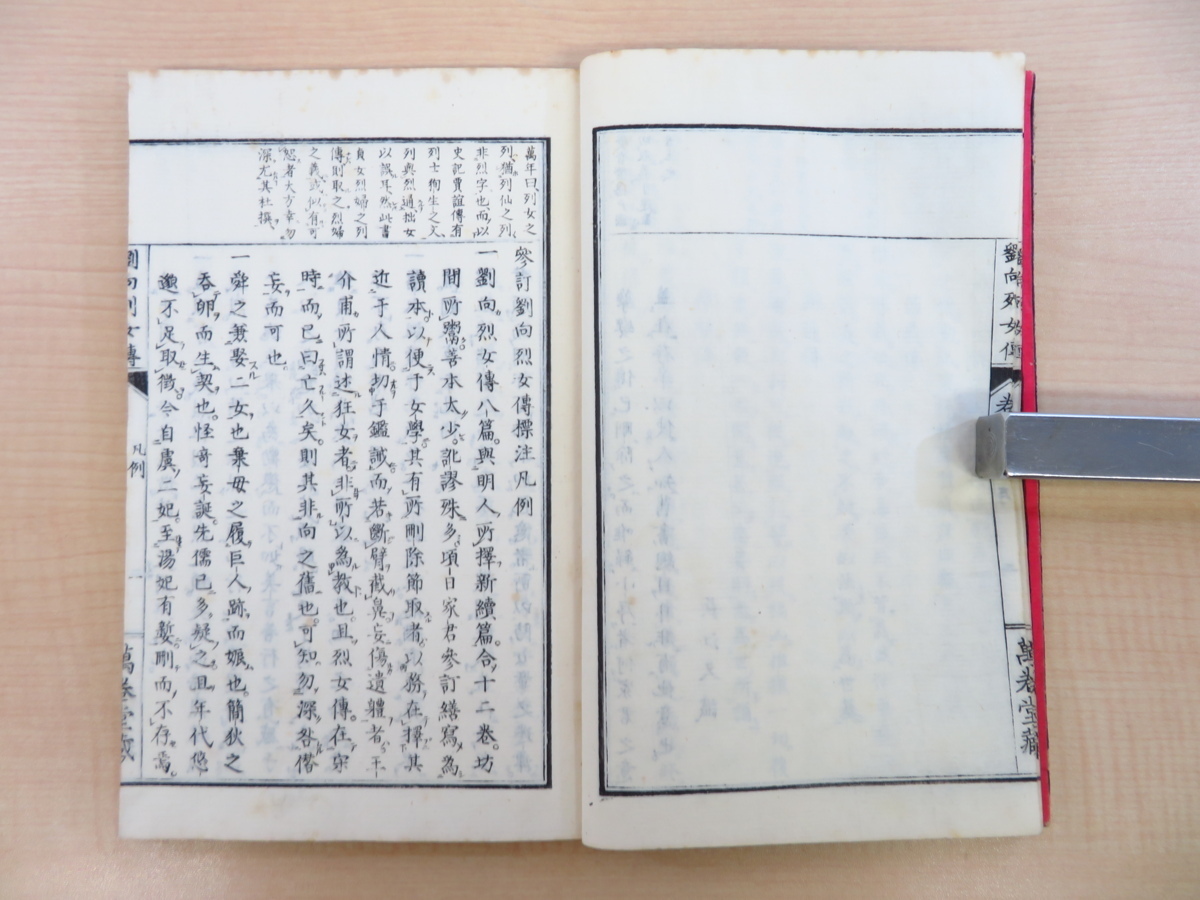 劉向列女傳
卷
萬卷堂藏
萬年曰列女之
列猶列仙之列
非烈字也而以
史記賈誼傳有
列士徇生之文
列與烈通拙女
以誤耳然此書
貞女烈婦之列
傳則取之烈婦
之義或似有可
恕者大方幸勿
深尤其杜撰
參訂劉向烈女傳標注凡例
一劉向烈女傳八篇與明人所擇新續篇合十二卷坊
間所鬻善本太少訛謬殊多頃日家君參訂繕寫為
讀本以便于女學其有所刪除節取者以務在擇其
近于人情切于鑑誡而若斷臂截鼻妄傷遺軆者王
介甫所謂述狂女者非所以為教也且烈女傳在宋
時而已曰亡久矣則其非向之舊也可知勿深咎僭
妄而可也
一舜之兼娶二女也棄母之履巨人跡而娠也簡狄之
吞卵而生契也怪奇妄誕先儒已多疑之且年代悠
邈不足取徵今自虞二妃至湯妃有㜪刪而不存焉
劉向列女傳
凡例
一
萬卷堂藏